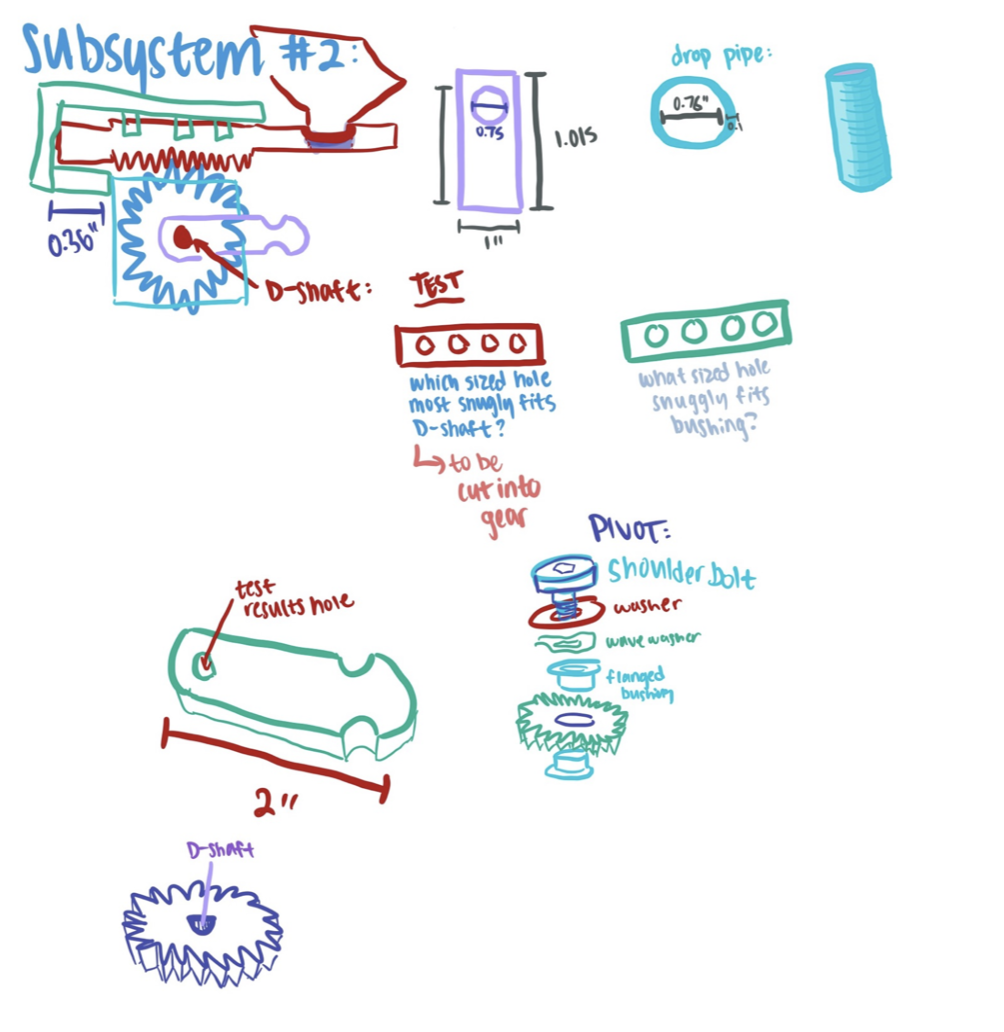 Subsystem #2:
drop pipe:
0.75
1.015
1"
0.76"
0.1
0.36"
D-shaft:
TEST
which sized hole
most snugly fits
D-shaft?
to be
cut into
gear
what sized hole
snuggly fits
bushing?
PIVOT:
shoulder bolt
washer
wave washer
flanged
bushing
test
results hole
2"
D-shaft